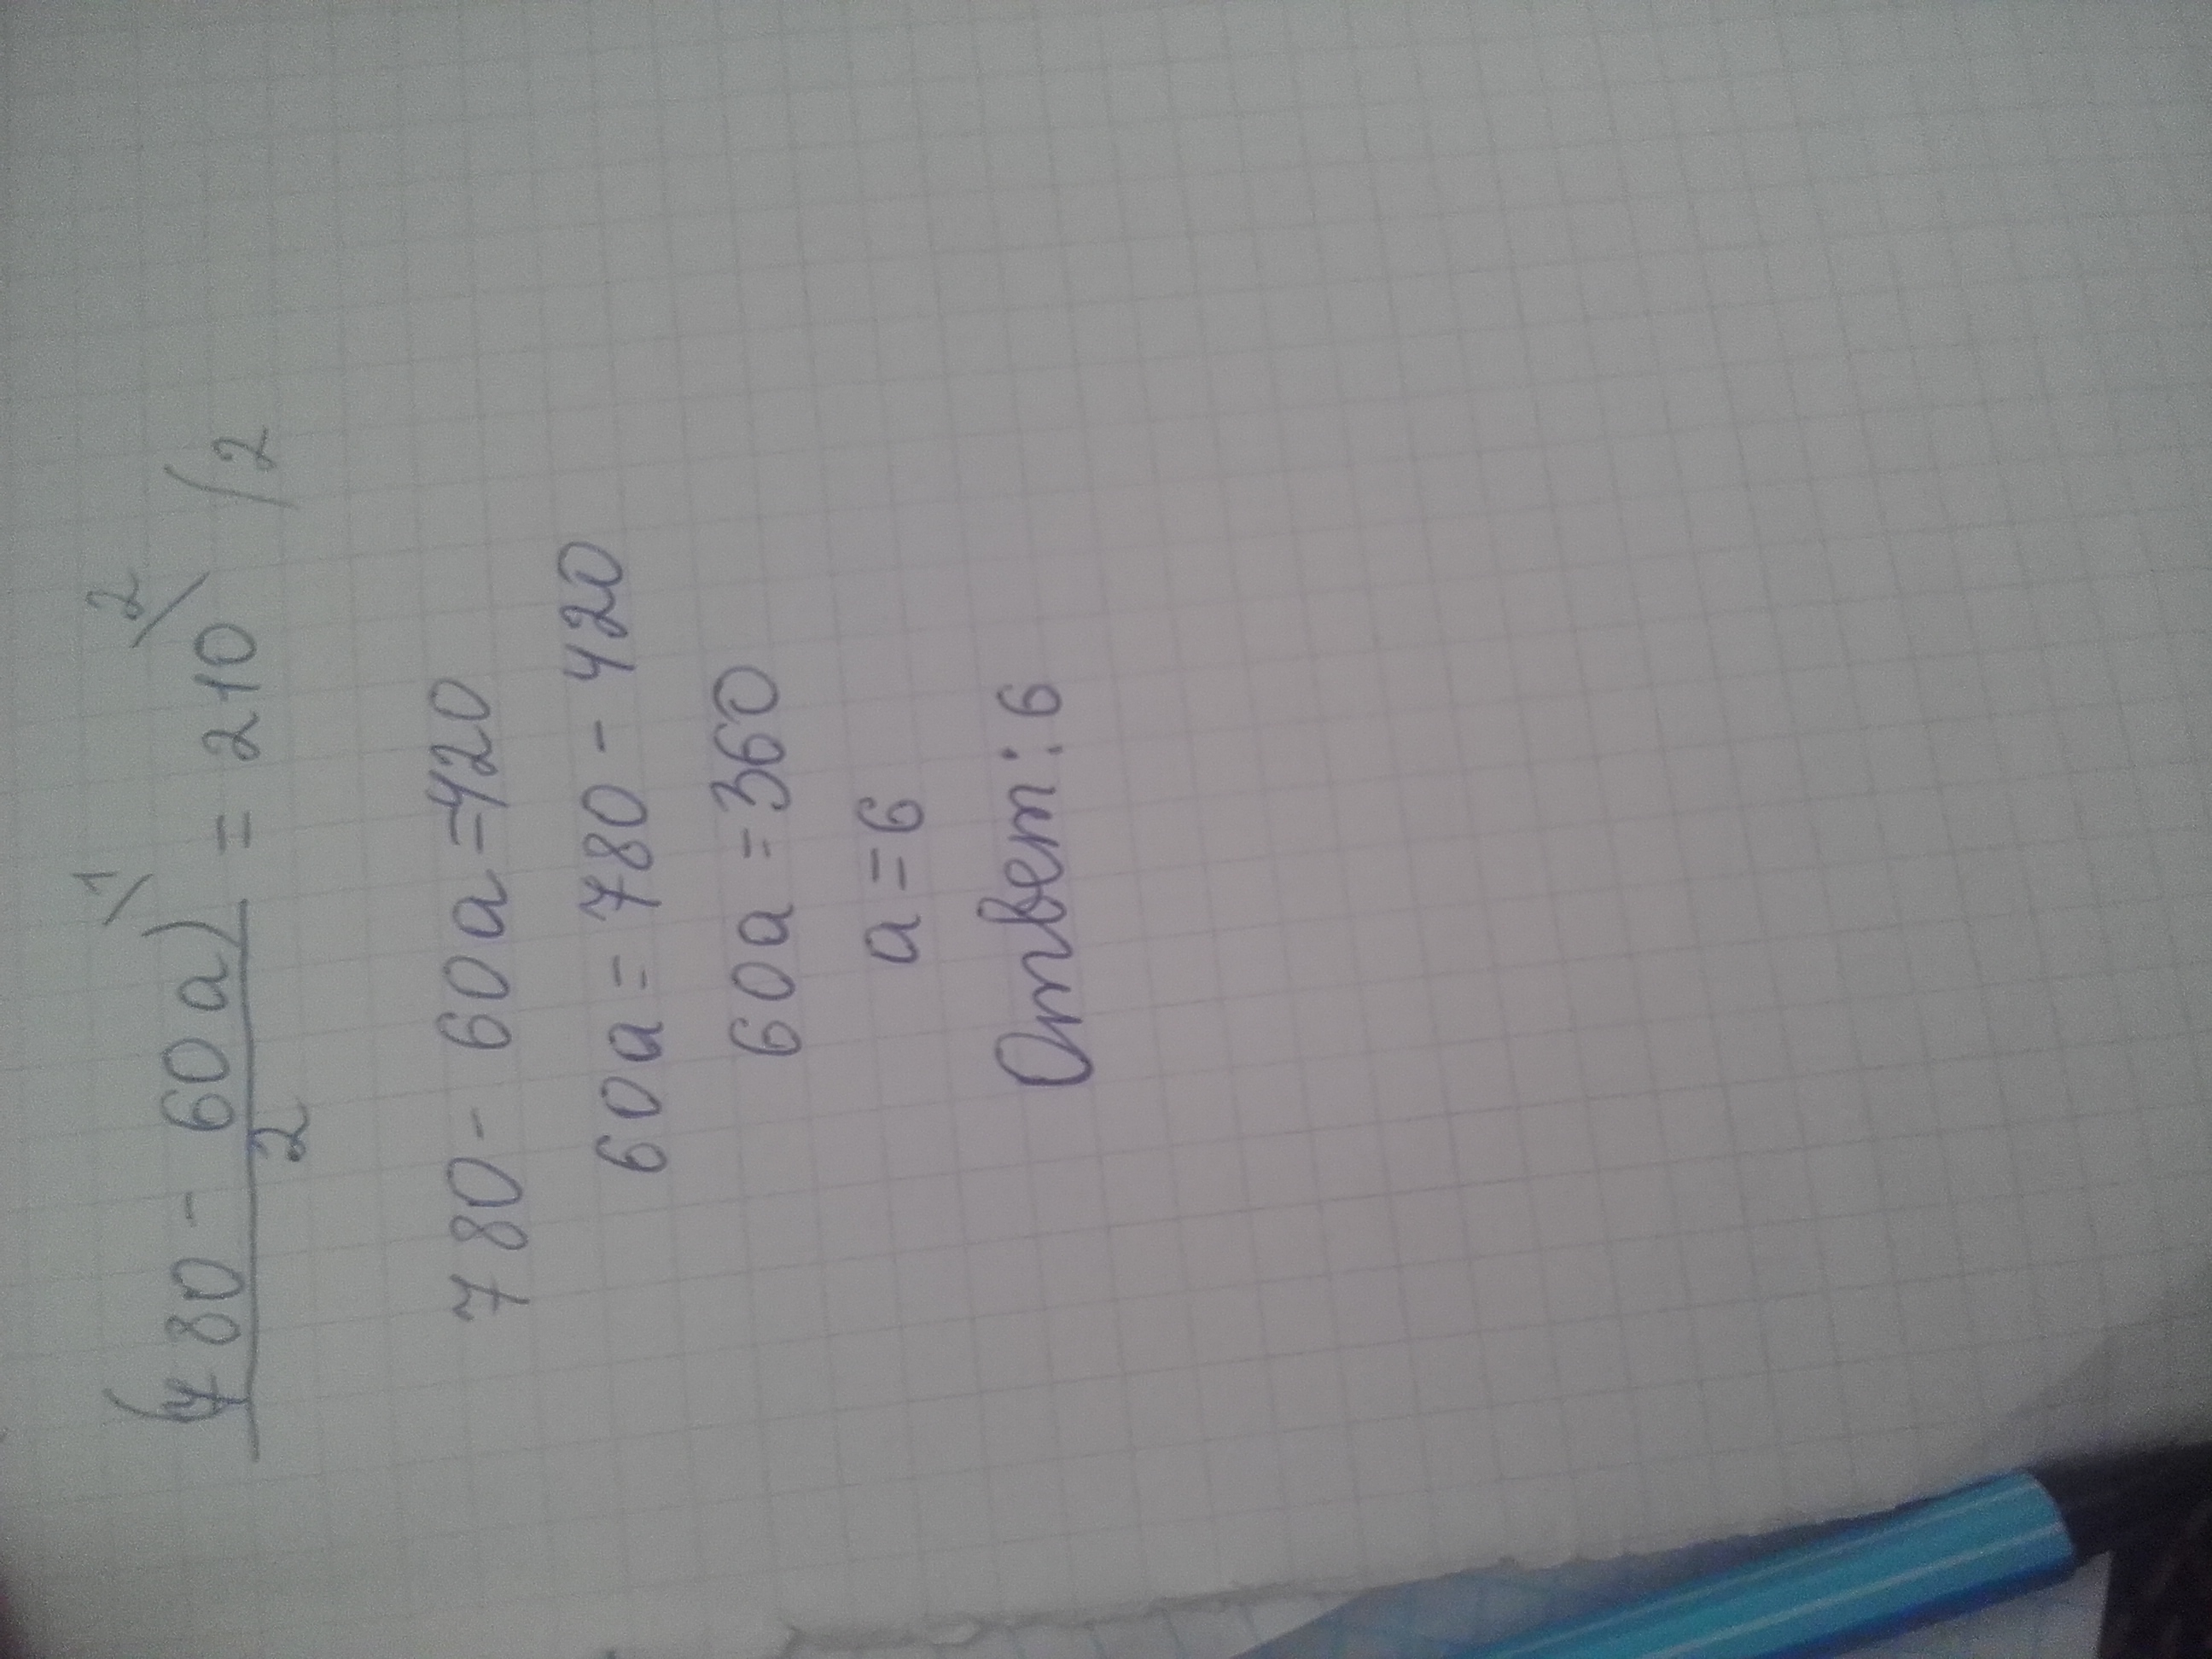 (780 - 60a)\1 / 2 = 210\2 /2
780 - 60a = 420
60a = 780 - 420
60a = 360
a = 6
Ответ: 6